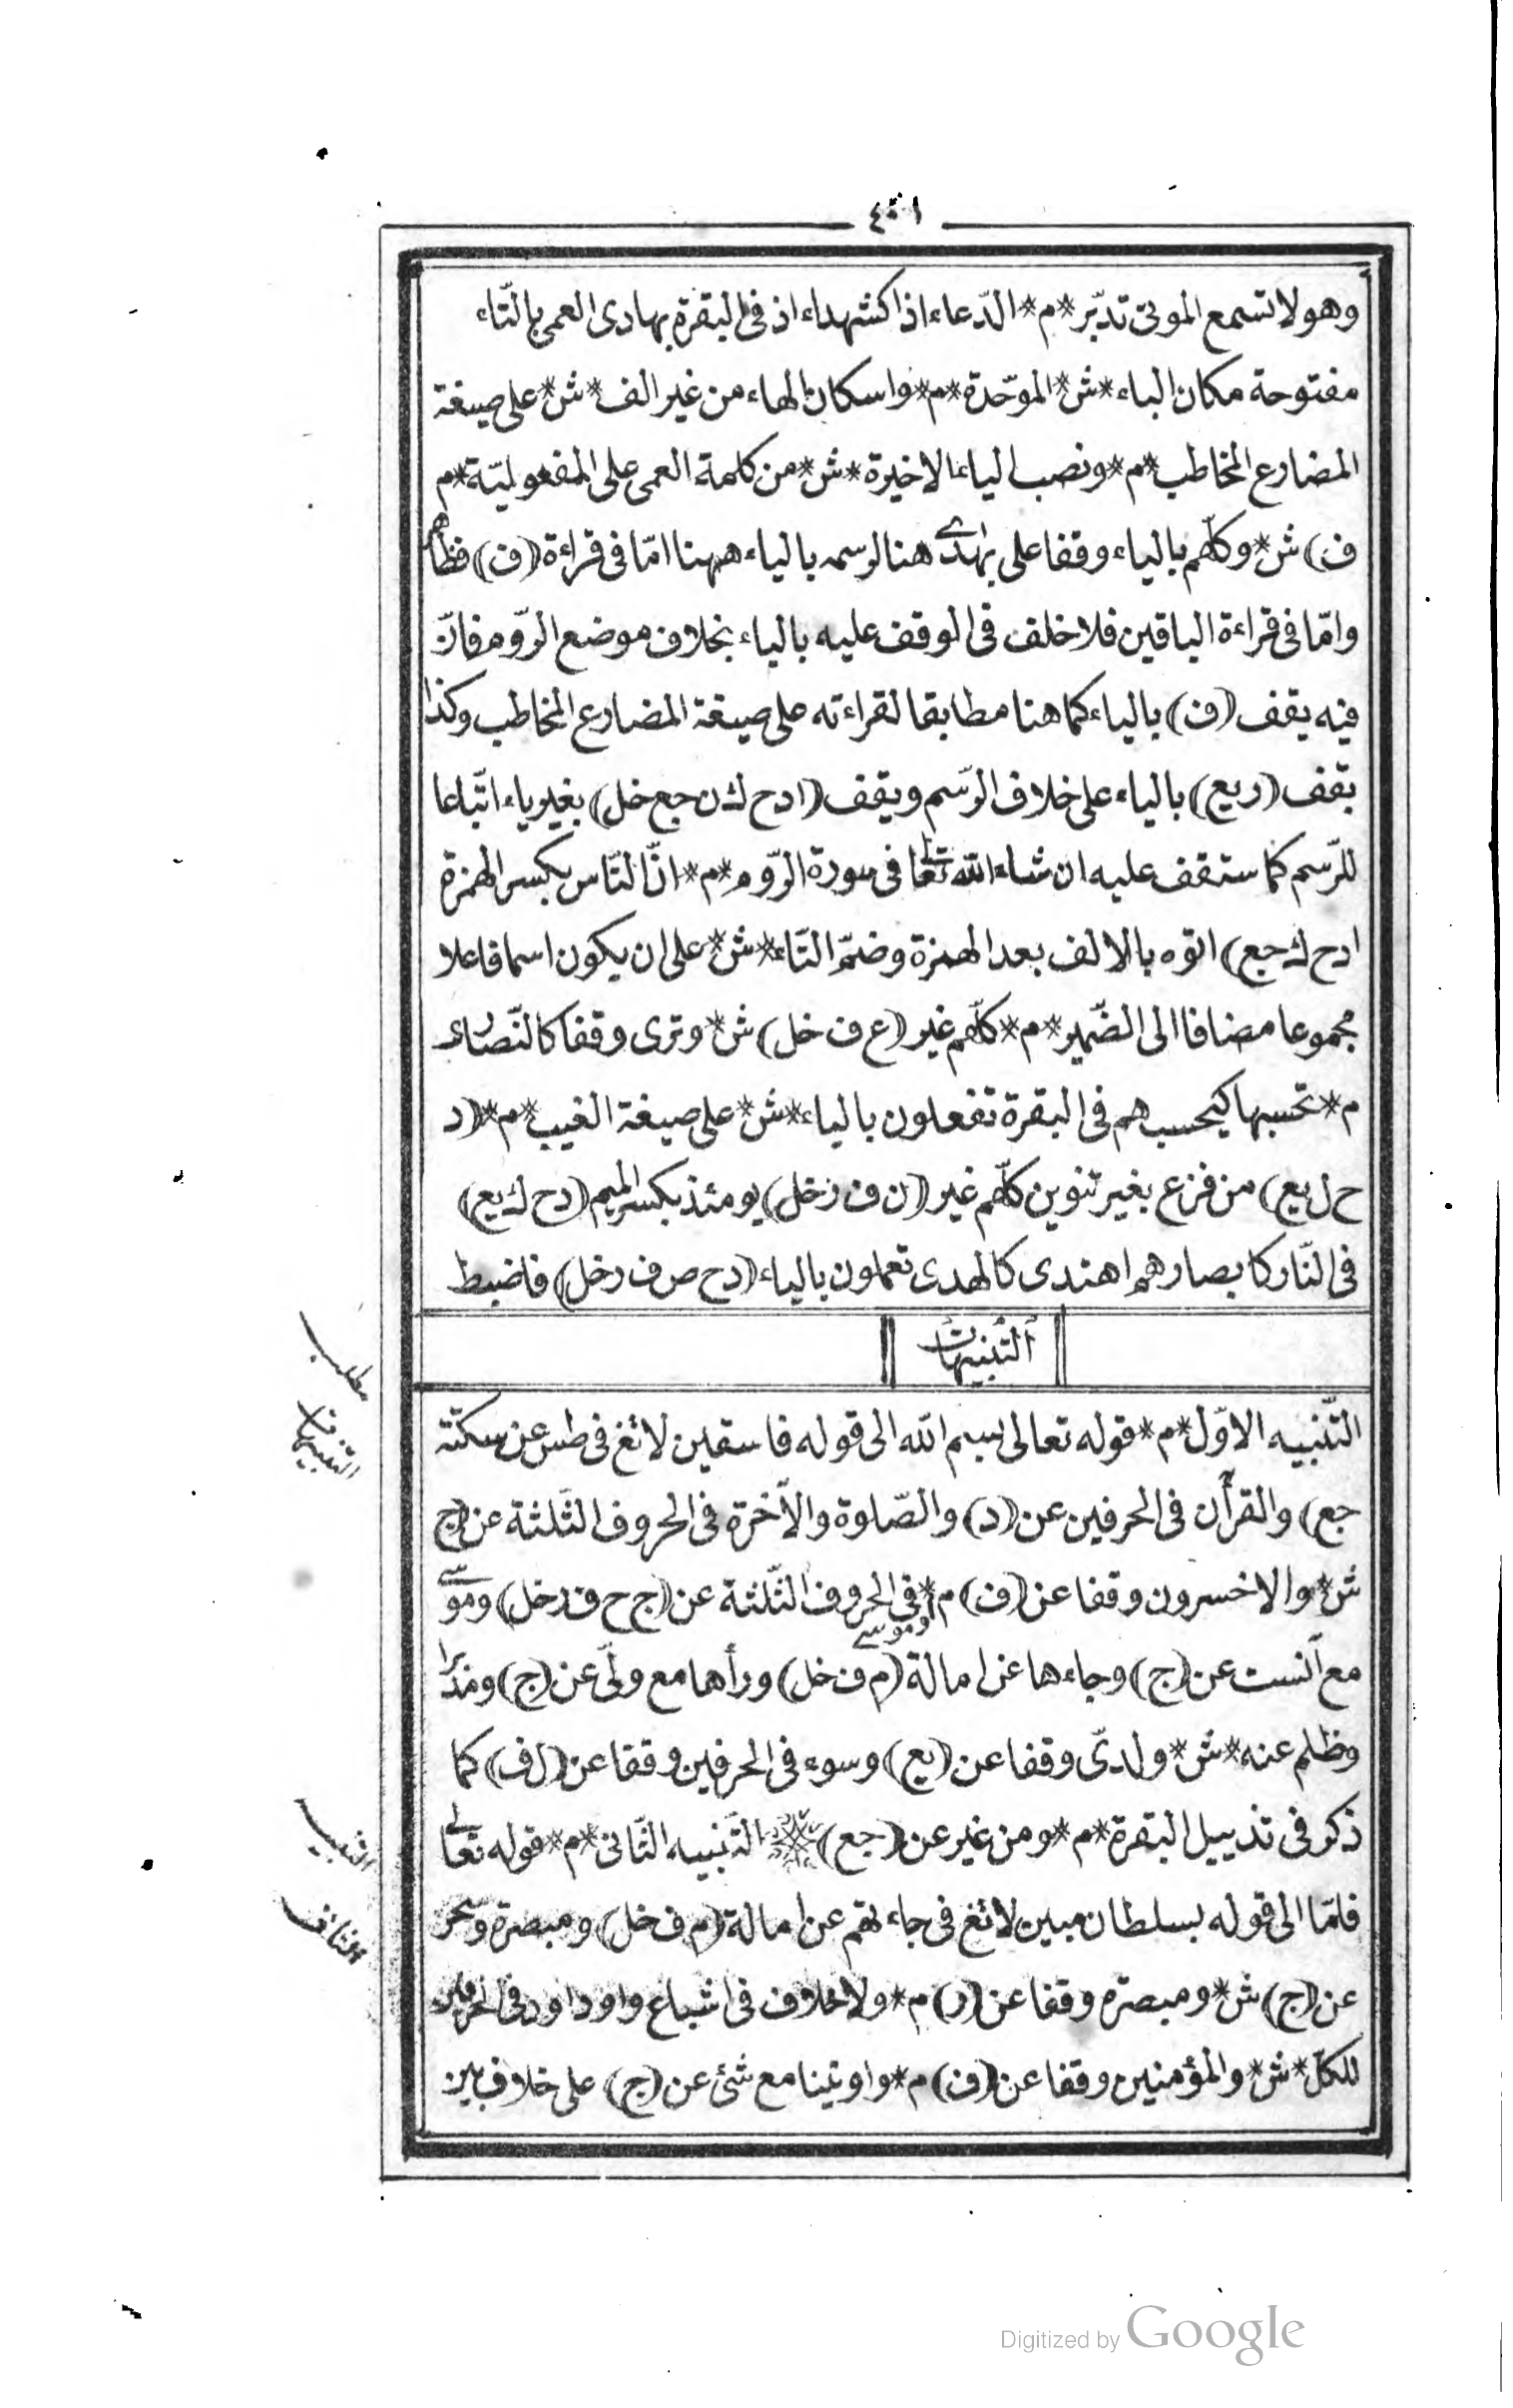 ٤٠١
وهو لا تسمع الموتى تدبّر*م*الدّعاء اذا كشهداء اذ فى البقرة بهادى العمى بالتّاء
مفتوحة مكان الباء*ش*الموحّدة*م*واسكان الهاء من غير الف*ش*على صيغة
المضارع المخاطب*م*ونصب الياء الاخيرة*ش*من كلمة العمى على المفعوليّة*م
ف) ش*وكلّهم بالياء وقفا على بهدى هنا لرسمه بالياء ههنا امّا فى قراءة (ف) فظاهر
وامّا فى قراءة الباقين فلا خلف فى الوقف عليه بالياء بخلاف موضع الرّوم فانّ
فيه يقف (ف) بالياء كما هنا مطابقا لقراءته على صيغة المضارع المخاطب وكذا
يقف (ر يع) بالياء على خلاف الرّسم ويقف (ا د ح ك ن جع خل) بغير ياء اتّباعا
للرّسم كما ستقف عليه ان شاء الله تعالى فى سورة الرّوم*م*انّ النّاس بكسر الهمزة
ا د ح ك جع) اتوه بالالف بعد الهمزة وضمّ التّاء*ش*على ان يكون اسما فاعلا
مجموعا مضافا الى الضّمير*م*كلّهم غير (ع ف خل) ش*وترى وقفا كالنّصارى
م*تحسبها كيحسبهم فى البقرة تفعلون بالياء*ش*على صيغة الغيب*م*(د
ح ل يع) من فزع بغير تنوين كلّهم غير (ن ف ر خل) يومئذ بكسر الميم (د ح ك يع)
فى النّار كابصارهم اهتدى كالهدى تعملون بالياء (د ح ص ف ر خل) فاضبط
التّنبيهات
مطلب
التنبيهات
التّنبيه الاوّل*م*قوله تعالى بسم الله الى قوله فاسقين لا تغ فى طس عن سكتة
جع) والقرأن فى الحرفين عن (د) والصّلوة والآخرة فى الحروف الثّلثة عن (ج
ش*والاخسرون وقفا عن (ف) م*فى الحروف الثّلثة عن (ج ح ف ر خل) وموسى
وموسى
مع آنست عن (ج) وجاءها عن امالة (م ف خل) ورأها مع ولّى عن (ج) ومدبرا
وظلم عنه*ش*ولدىّ وقفا عن (يع) وسوء فى الحرفين وقفا عن (ل ف) كما
ذكر فى تذييل البقرة*م*ومن غير عن (جع) * التّنبيه الثّانى*م*قوله تعالى
التنبيه
الثانى
فلمّا الى قوله بسلطان مبين لا تغ فى جاءتهم عن امالة (م ف خل) ومبصرة وسحر
عن (ج) ش*ومبصرة وقفا عن (ر) م*ولا خلاف فى اشباع واو داود فى الحرفين
للكلّ*ش*والمؤمنين وقفا عن (ف) م*واوتينا مع شئ عن (ج) على خلاف بين
Digitized by Google